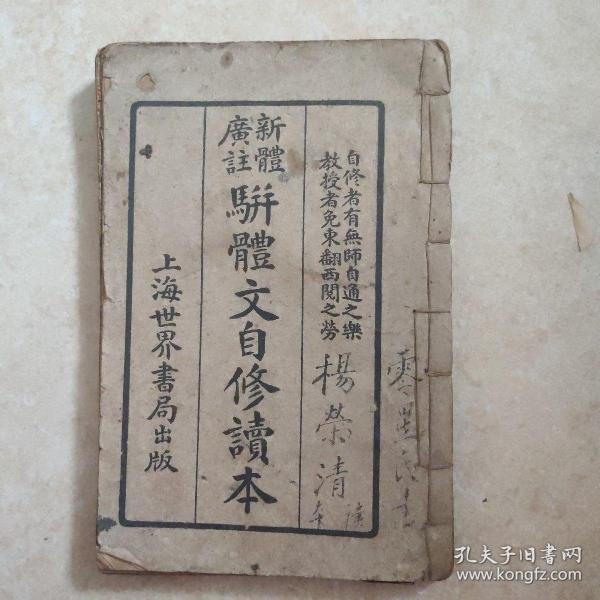 自修者有無師自通之樂
教授者免東翻西閱之勞
新體
廣註
駢體文自修讀本
上海世界書局出版
楊榮清
孔夫子旧书网
www.kongfz.com